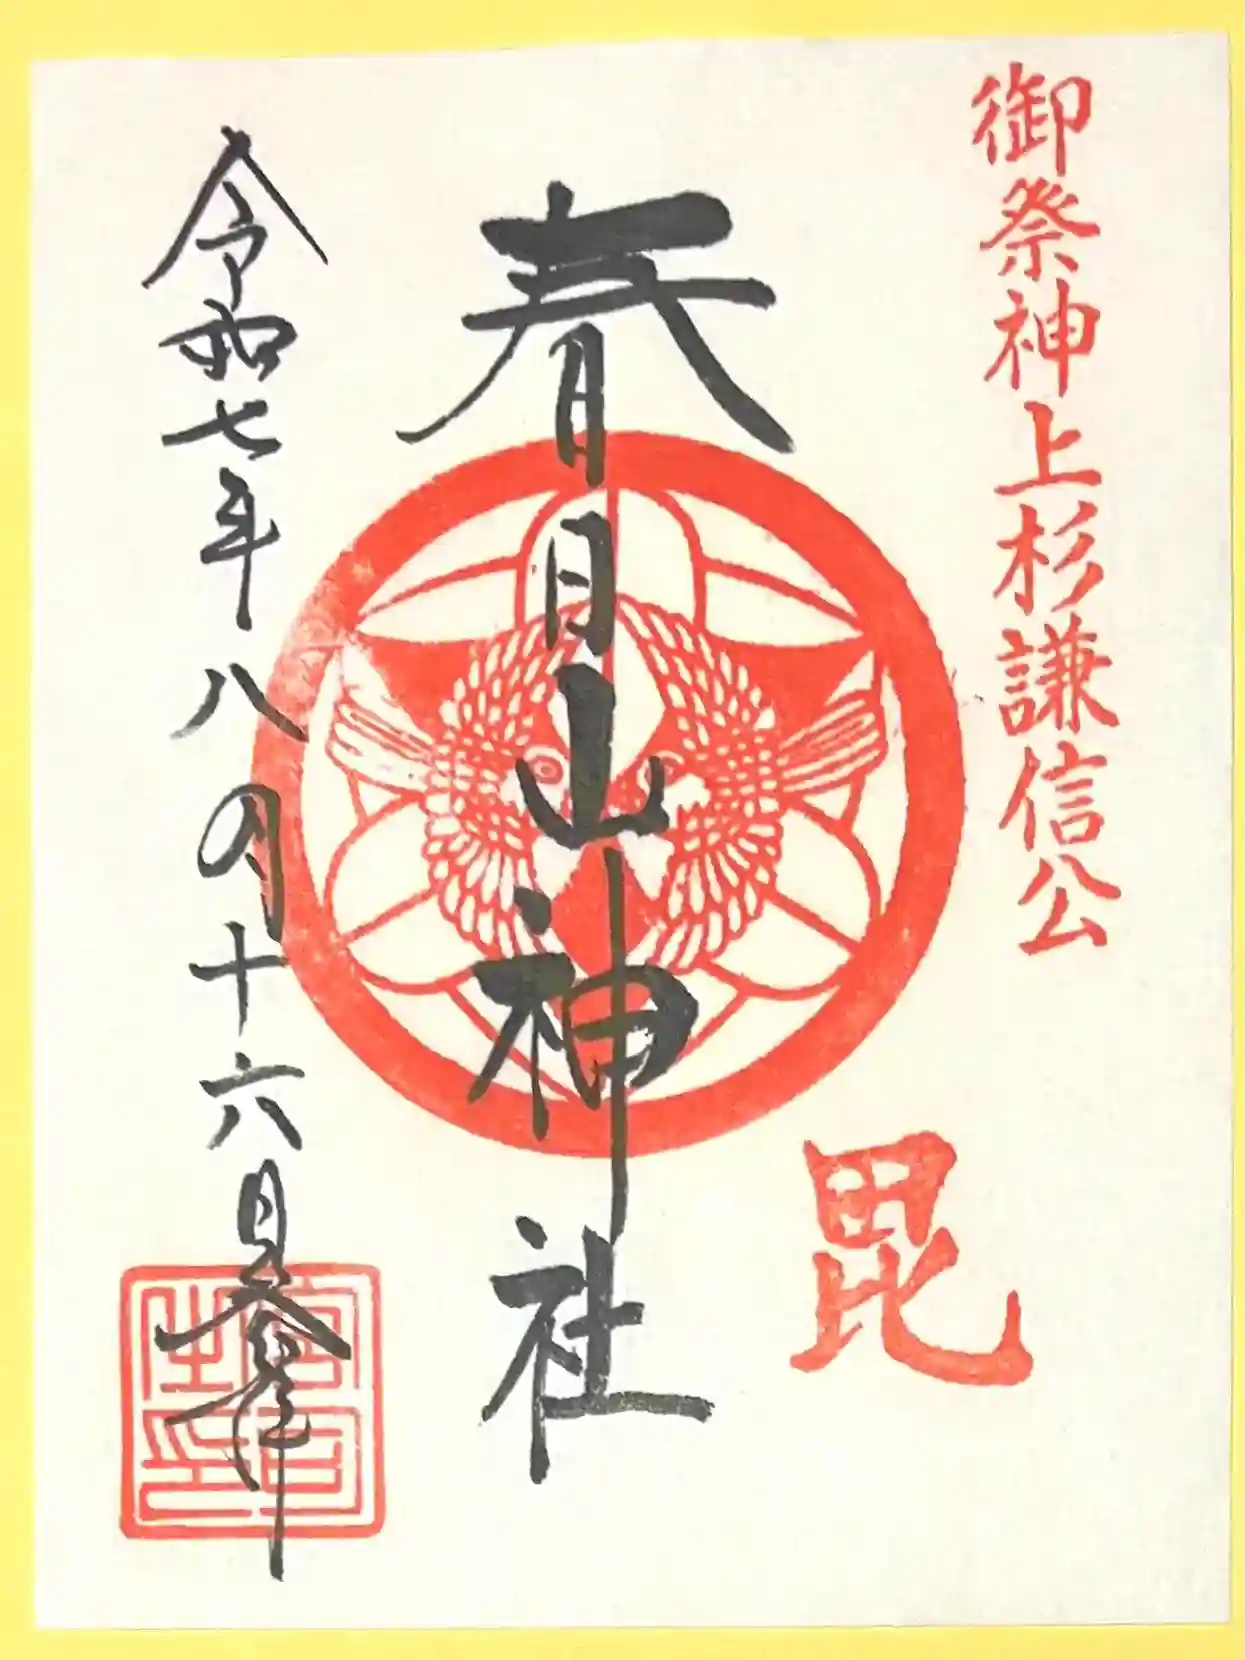 御祭神上杉謙信公
毘
春日山神社
令和七年八月十六日奉拝